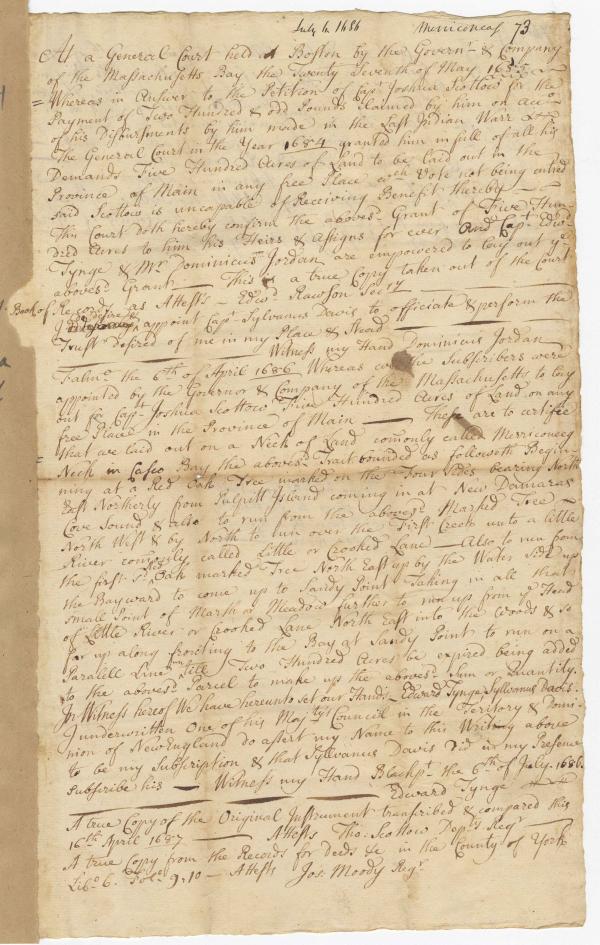 July 6. 1686 Merriconeag 73
At a General Court held at Boston by the Govern.r & Company
of the Massachusetts Bay the Twenty Seventh of May 1685
= Whereas in Answer to the Petition of Cap.t Joshua Scottow for the
Payment of Two Hundred & odd Pounds Claimed by him on acc.o
of his Disbursments by him made in the Last Indian Warr &ca
The General Court in the Year 1684 granted him in full of all his
Demands Five Hundred Acres of Land to be laid out in the
Province of Main in any free Place wch Vote not being entred
said Scottow is uncapable of Receiving Benefit thereby —
This Court doth hereby confirm the aboves.d Grant of Five Hun-
dred Acres to him his Heirs & Assigns for ever And Cap.t Edw.d
Tynge & Mr. Dominicus Jordan are empowered to lay out ye
aboves.d Grant — This is a true Copy taken out of the Court
Book of Records as Attests — Edw.d Rawson Sec.ry
I desire & appoint Cap.t Sylvanus Davis to officiate & perform the
Trust desired of me in my Place & Stead —
Witness my Hand Dominicus Jordan
Falm.o the 6th of April 1686 Whereas we the Subscribers were
appointed by the Governor & Company of the Massachusetts to lay
out for Cap.t Joshua Scottow Five Hundred Acres of Land on any
free Place in the Province of Main — These are to certifie
that we laid out on a Neck of Land com̄only called Merriconeeg
= Neck in Casco Bay the aboves.d Tract bounded as followeth Begin-
ning at a Red Oak Tree marked on the Four Sides bearing North
East Northerly from Pulpitt Island coming in at New Damaras
Cove Sound & also to run from the aboves.d Marked Tree —
North West & by North to run over the First Creek unto a little
River com̄only called Little or Crooked Lane — Also to run from
the first s.d Red Oak marked Tree North East up by the Water Side up
the Bayward to come up to Sandy Point Taking in all that
small Point of Marsh or Meadow further to run up from ye Head
of Little River or Crooked Lane North East into the Woods & so
far up along fronting to the Bay at Sandy Point to run on a
Paralell Line till Two Hundred Acres be expired being added
to the aboves.d Parcel to make up the aboves.d Sum or Quantity.
In Witness hereof We have hereunto set our Hands — Edward Tynge Sylvanus Davis.
I underwritten One of his Maj.tys Council in the Territory & Domi-
nion of New England do assert my Name to this Writing above
to be my Subscription & that Sylvanus Davis Did in my Presence
subscribe his — Witness my Hand Blackp.t the 6th of July. 1686.
Edward Tynge
A true Copy of the Original Instrument transcribed & compared this
16th April 1687 — Attests Tho. Scottow Dep.ty Reg.r
A true Copy from the Records for Deeds &c in the County of York
Lib.o 6. Fol.o 9. 10 — Attests Jos. Moody Reg.r